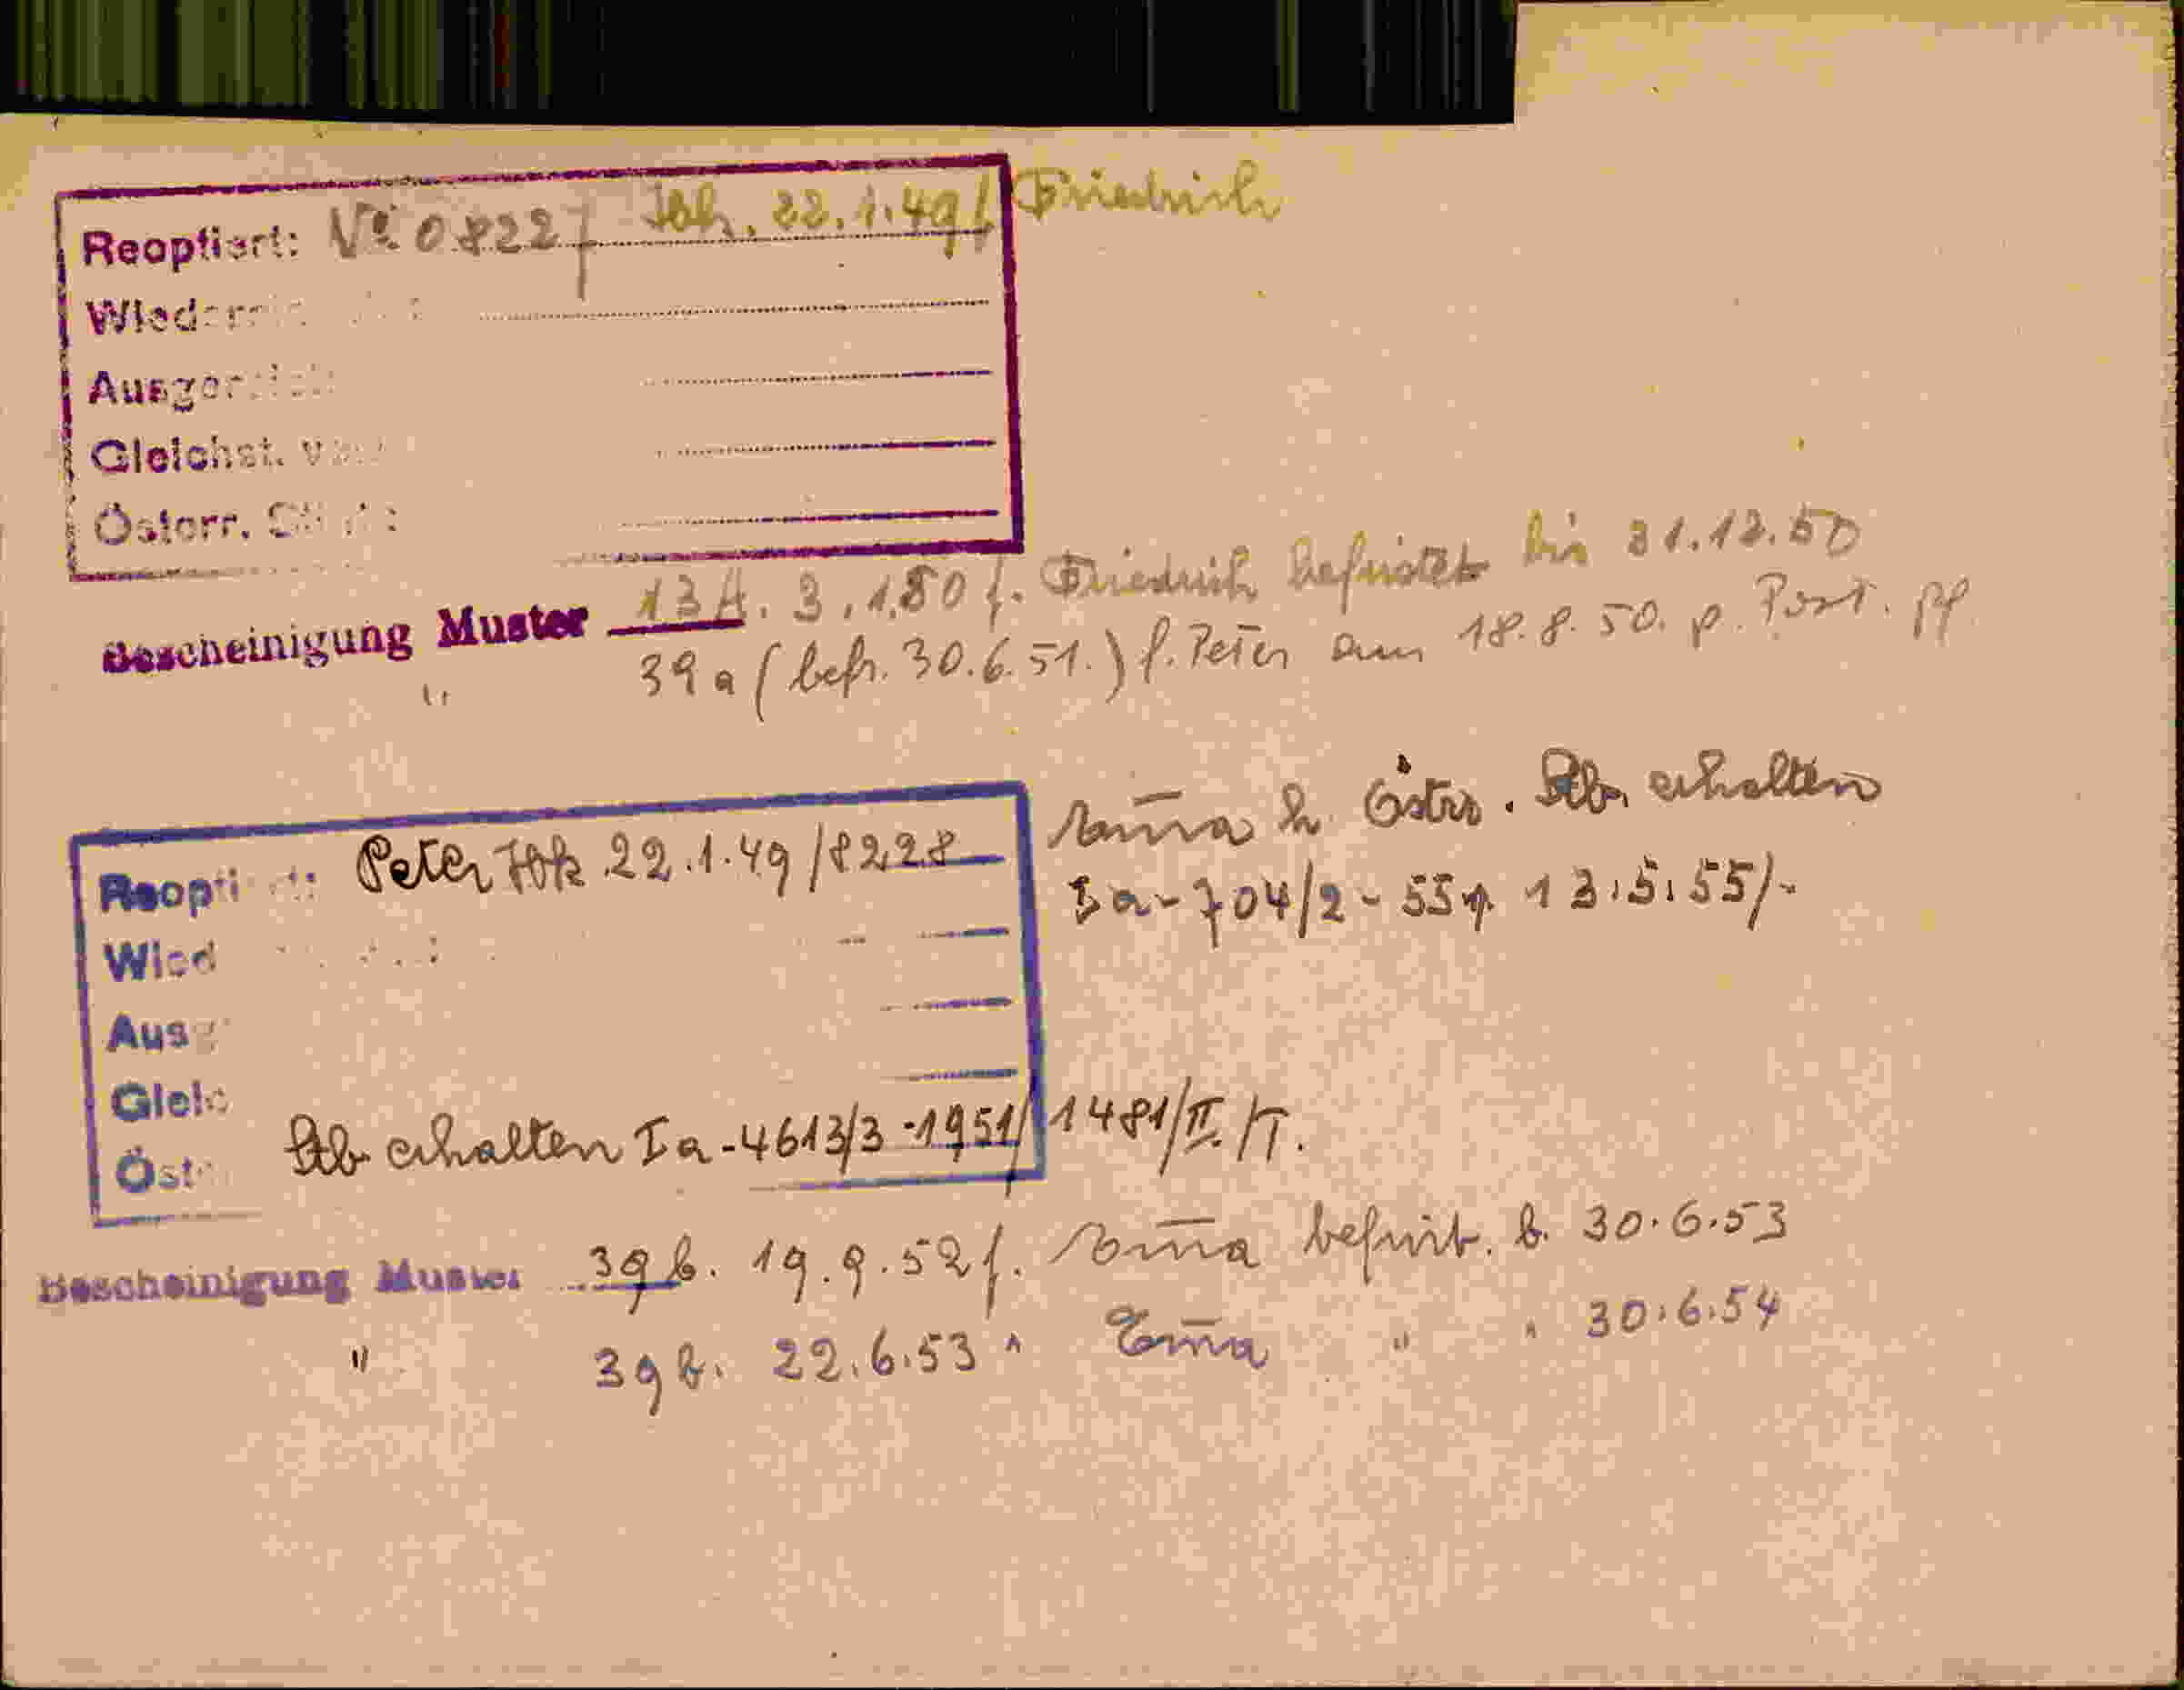 Reoptiert: No. 08227 Ibk. 22.1.49 f. Friedrich
Wieder
Ausger
Gleichst. v
Österr. St
Bescheinigung Muster 13A. 3.1.50 f. Friedrich befristet bis 31.12.50
" 39a (befr. 30.6.51.) f. Peter am 18.8.50. p. Post. pf
Anna h. Östr. Stb. erhalten
Ia-704/2-55 13.5.55/-
Reopti t: Peter Ibk 22.1.49/8228
Wied
Aus
Gleic
Öst Stb erhalten Ia-4613/3-1951/1481/II/T.
Bescheinigung Muster 39b. 19.9.52 f. Anna befrist. b. 30.6.53
" 39b. 22.6.53 " Anna " " 30.6.54